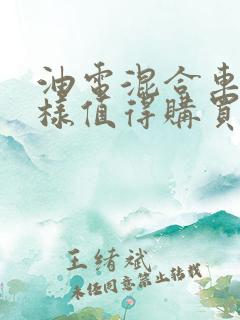 油電混合車
樣值得購買
王緒斌
未經同意禁止轉載